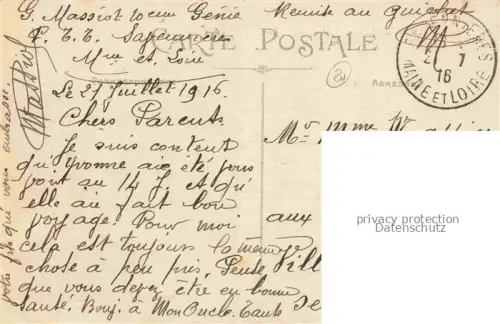 G. Massiot 10eme Génie Remise au guichet
P. T. T. Sapeur
Mne et Loire
CARTE POSTALE
CORRESPONDANCE
ADRESSE
7
16
MAINE ET LOIRE
Le 27 Juillet 1916.
Chers Parents
Je suis content
qu'yvonne aie été
au 14 J. et qu'
elle au fait bon
voyage. Pour moi
cela est toujours la même
chose à peu près, Pense
que vous devez être en bonne
santé. Bonj. à Mon Oncle. Tante
votre fils qui vous embrasse.
Massiot
Mr Mme
aux
Vill
privacy protection
Datenschutz